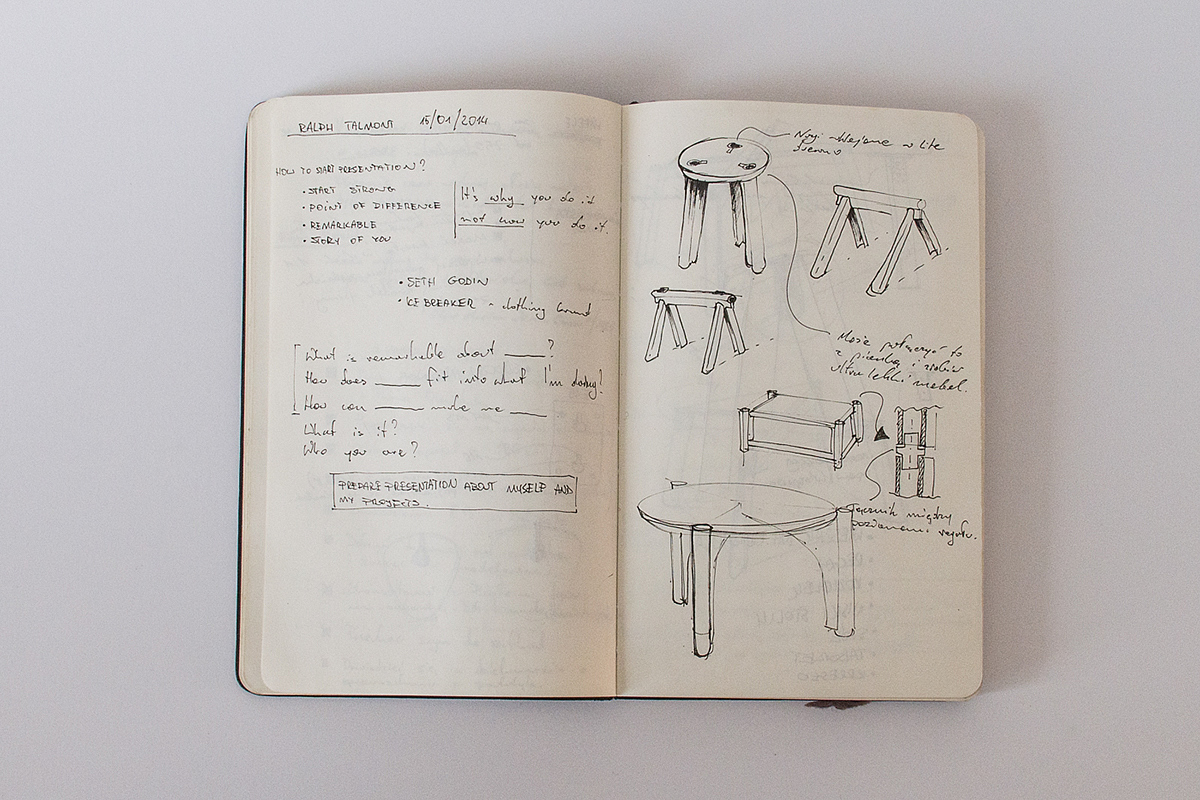 RALPH TALMONT 15/01/2014
HOW TO START PRESENTATION?
• START STRONG
• POINT OF DIFFERENCE
• REMARKABLE
• STORY OF YOU
It's why you do it
not how you do it.
• SETH GODIN
• ICE BREAKER - clothing brand
What is remarkable about ____?
How does ____ fit into what I'm doing?
How can ____ make me ____
What is it?
Who you are?
PREPARE PRESENTATION ABOUT MYSELF AND
MY PROJECTS.
Nogi wlejane w lite
drewno
Może połączyć to
z pianką i zrobić
ultra lekki mebel.
Łącznik między
poziomami regału.